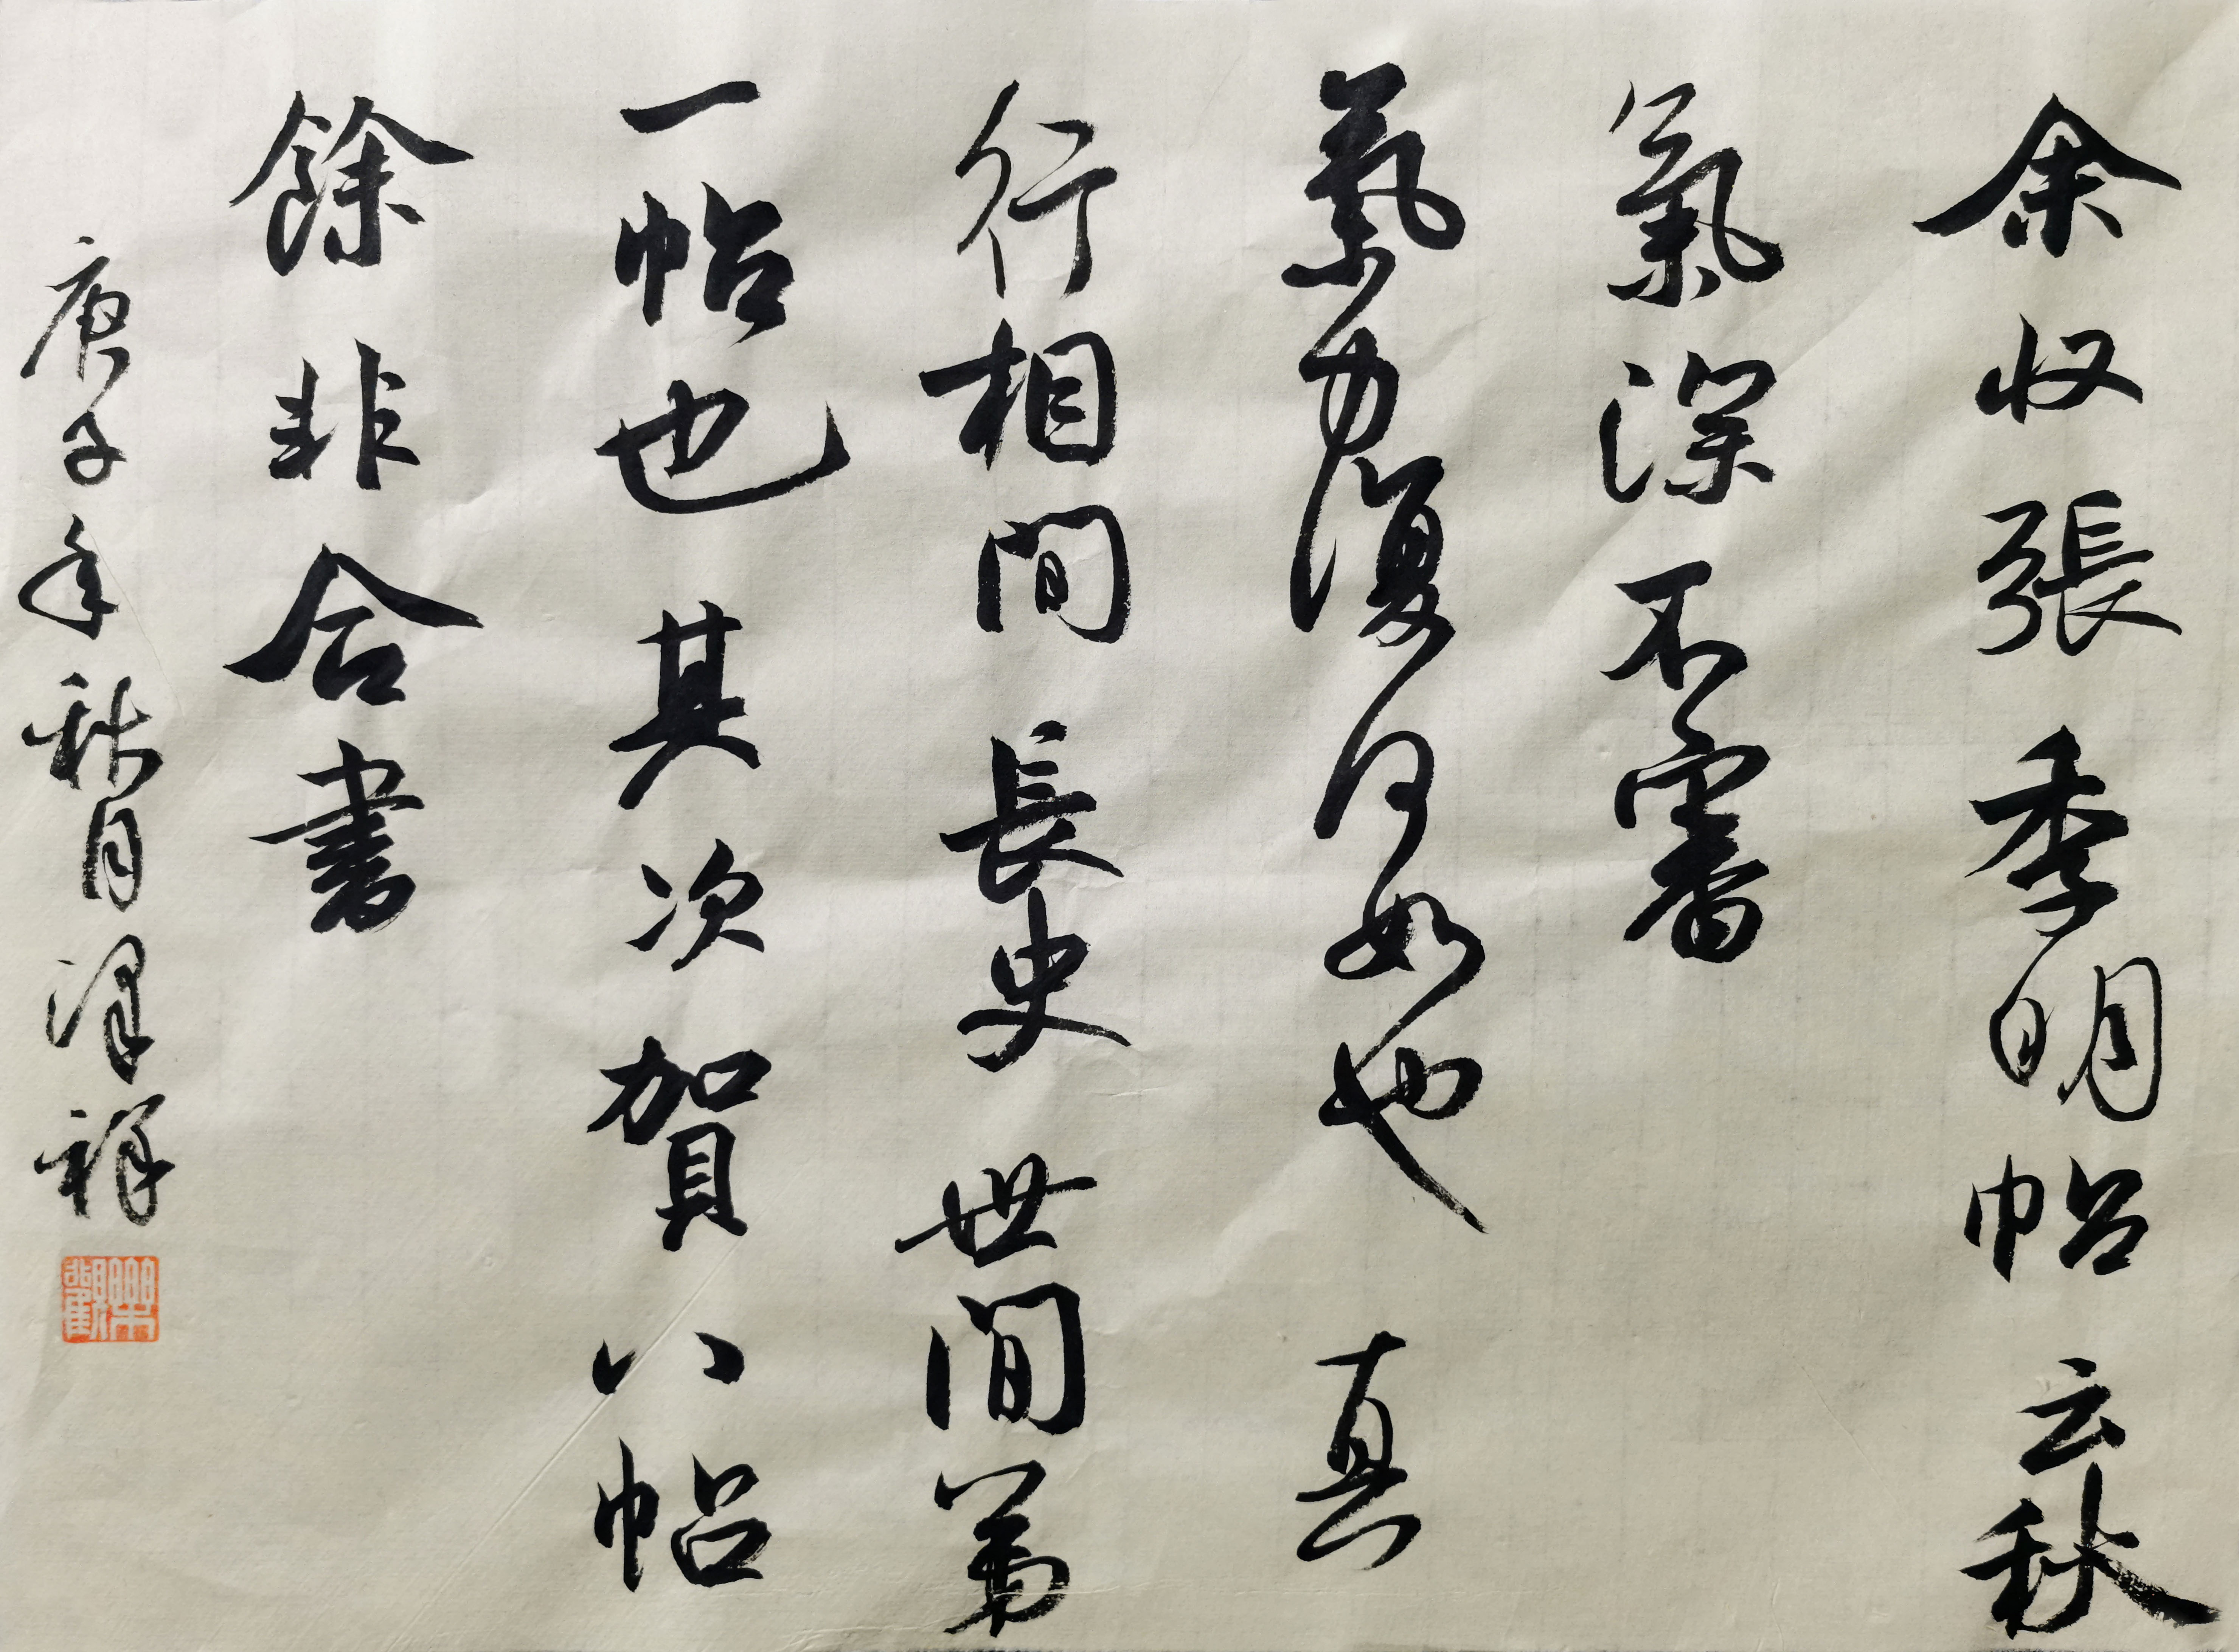 余収張季明帖云秋
氣深不審
氣力復何如也真
行相間長史世間第
一帖也其次賀八帖
餘非合書
庚子年秋月澤祥
樂觀